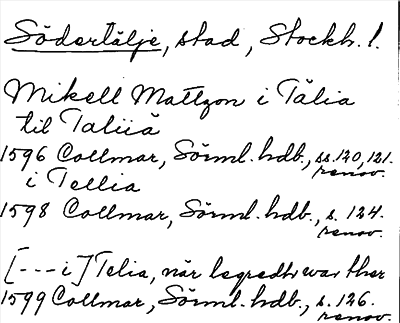 Södertälje, stad, Stockh. l.
Mikell Mattzon i Tälia
til Taliiä
1596 Collmar, Sörml. hdb., ss. 120, 121.
renov.
i Tellia
1598 Collmar, Sörml. hdb., s. 124.
renov.
[---i] Telia, när legredhr war ther
1599 Collmar, Sörml. hdb., s. 126.
renov.